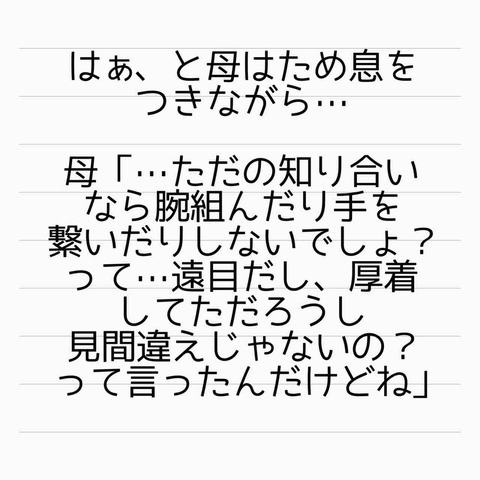 はぁ、と母はため息を
つきながら…
母「…ただの知り合い
なら腕組んだり手を
繋いだりしないでしょ？
って…遠目だし、厚着
してただろうし
見間違えじゃないの？
って言ったんだけどね」